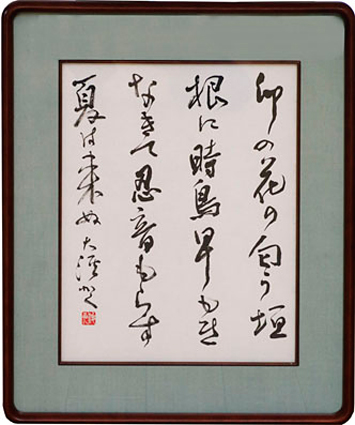 卯の花の匂う垣
根に時鳥早もき
なきて忍音もらす
夏は来ぬ